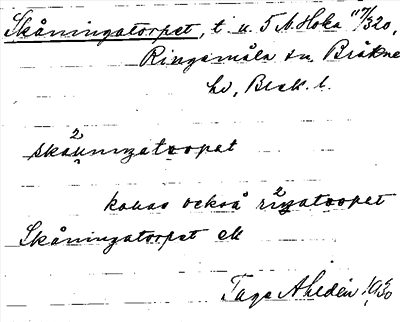 Skåningatorpet, t. u. 5 N. Hoka 17/320,
Ringamåla sn, Bräkne
hd, Blek. l.
skåningatorpet
kallas också ringatorpet
Skåningatorpet
Tage Ahldén 1930